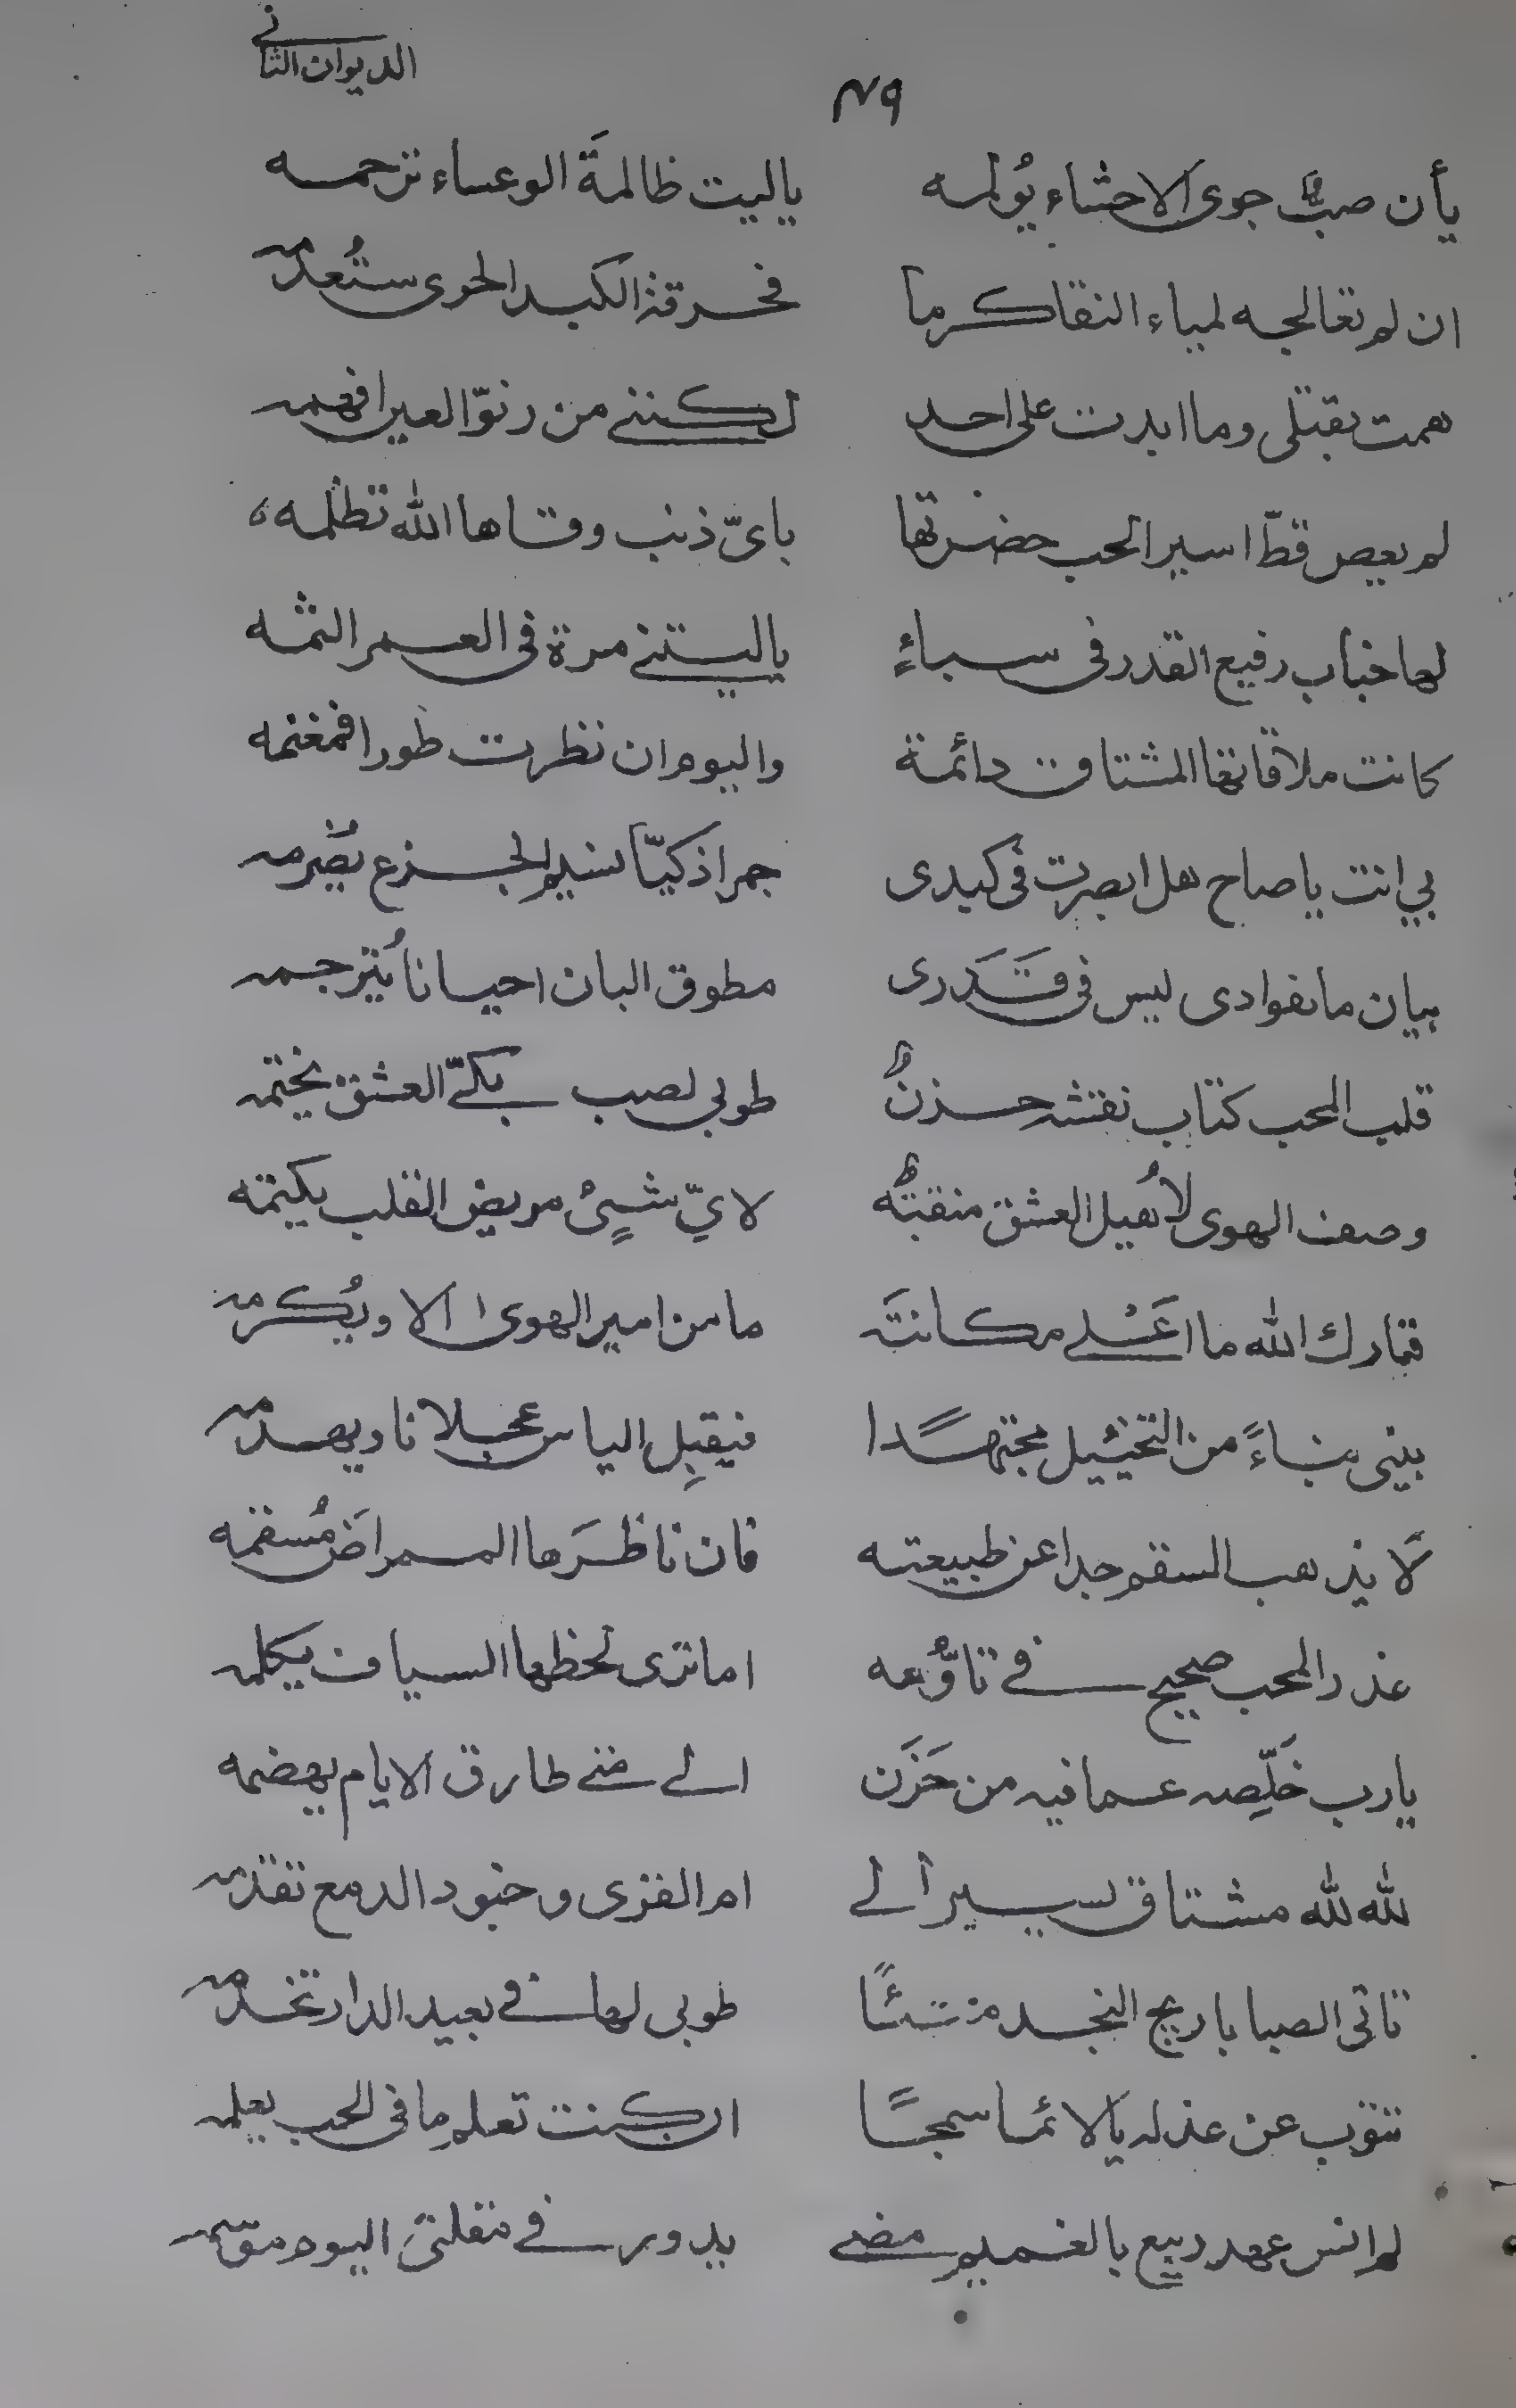 الديوان الثاني
٧٩
يأن صبٌّ جوى الاحشاء يُولمه ياليت ظالمةَ الوعساء ترحمه
ان لم تعالجه لمياء النقا كرما فحرقة الكبد الحرى ستُعدمه
همت بقتلى وما ابدت على احد لكننى من رنوّ العين افهمه
لم يعص قطّ اسير الحب حضرتها باىّ ذنب وقاها الله تظلمه
لها خباب رفيع القدر فى سباءٍ ياليتنى مرة فى العمر الثمه
كانت ملاقاتها المشتاق دائمة واليوم ان نظرت طورا فمغنمه
بي انت يا صاح هل ابصرت فى كبدى جمرا ذكيّا نسيم الجزع يضرمه
بيان ما بفوادى ليس فى قَدَرى مطوق البان احيانا يُترجمه
قلب المحب كتاب نقشه حزنٌ طوبى لصب بكيّ العشق يختمه
وصف الهوى لاُهيل العشق منقبةٌ لايّ شيٍئ مريض القلب يكتمه
فتبارك الله ما اعْلى مكانتَه ما من امير الهوى الا ويُكرمه
يبنى بناءً من التخئيل مجتهدًا فيقبِل الياس عجلانا ويهدمه
لَا يذهب السقم جدا عن طبيعته فان ناظرَها الممراضَ مُسقمه
عذر المحب صحيح فى تاوُّهه اما ترى لحظها السياف يكلمه
يارب خَلِّصه عما فيه من حَزَن الى متى طارق الايام يهضمه
لله لله مشتاق يسير الى ام القرى وجنود الدمع تقدمه
تاتى الصبا باريج النجد منشئًا طوبى لها فى بعيد الدار تخدمه
تتوب عن عذله يالائما سمجًا ان كنت تعلم ما فى الحب يعلمه
لم انس عهد ربيع بالغميم مضى يدور فى مقلتى اليوم موسمه